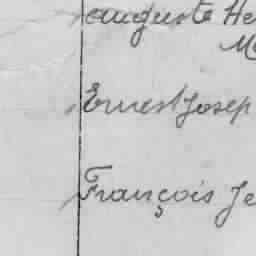 auguste He
Ma
Ernest Josep
François Je